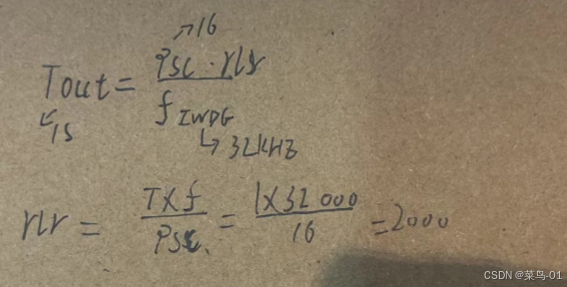 →16
Tout = psc · rlr / f IWDG
↙1S
↳ 32KHZ
rlr = T×f / psc = 1×32000 / 16 = 2000
CSDN @菜鸟-01